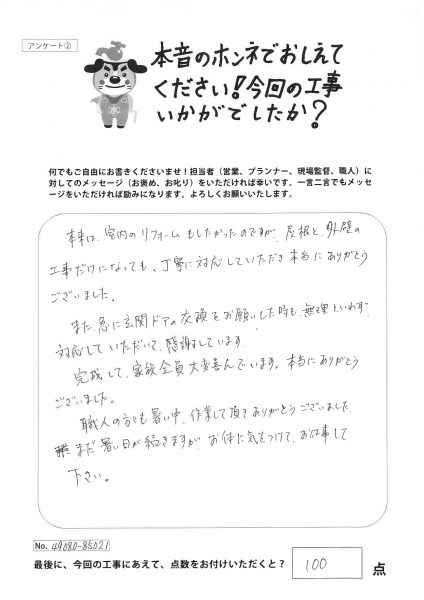 アンケート②
本音のホンネでおしえて
ください!今回の工事
いかがでしたか?
水
何でもご自由にお書きくださいませ!担当者(営業、プランナー、現場監督、職人)に
対してのメッセージ(お褒め、お叱り)をいただければ幸いです。一言二言でもメッセ
ージをいただければ励みになります。よろしくお願いいたします。
本来は、室内のリフォームもしたかったのですが、屋根と、外壁の
工事だけになっても、丁寧に対応していただき本当にありがとう
ございました。
また、急に玄関ドアの交換をお願いした時も、無理といわず、
対応していただいて、感謝しています。
完成して、家族全員大変喜んでいます。本当にありがとう
ございました。
職人の方々も暑い中、作業して頂きありがとうございました。
まだ暑い日が続きますが、お体に気をつけて、お仕事して
下さい。
No. 49080-85021
最後に、今回の工事にあえて、点数をお付けいただくと? 100 点